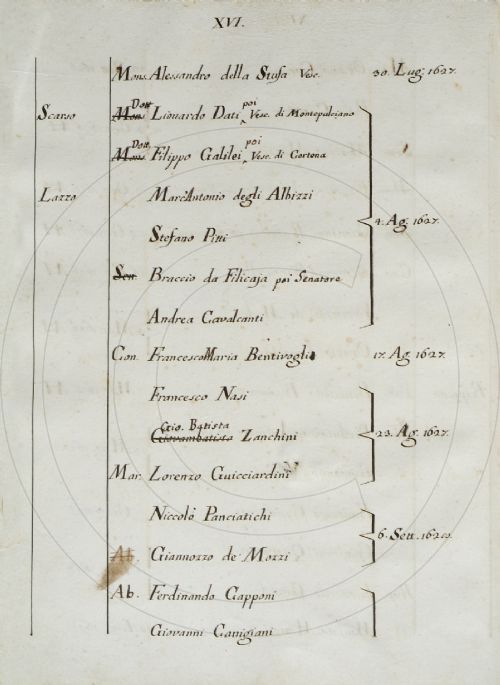 XVI.
Mons. Alessandro della Stufa Vesc. 30. Lug. 1627.
Scarso Dott. Mons. Lionardo Dati poi Vesc. di Montepulciano
Dott. Mons. Filippo Galilei poi Vesc. di Cortona
Lazzo Marc'Antonio degli Albizzi
4. Ag. 1627.
Stefano Pitti
Sen. Braccio da Filicaja poi Senatore
Andrea Cavalcanti
Con. FrancescoMaria Bentivogli 17. Ag. 1627.
Francesco Nasi
Gio. Batista
Giovambatista Zanchini 23. Ag. 1627.
Mar. Lorenzo Guicciardini
Niccolò Panciatichi
6. Sett.
Ab. Giannozzo de Mozzi
Ab. Ferdinando Capponi
Giovanni Canigiani